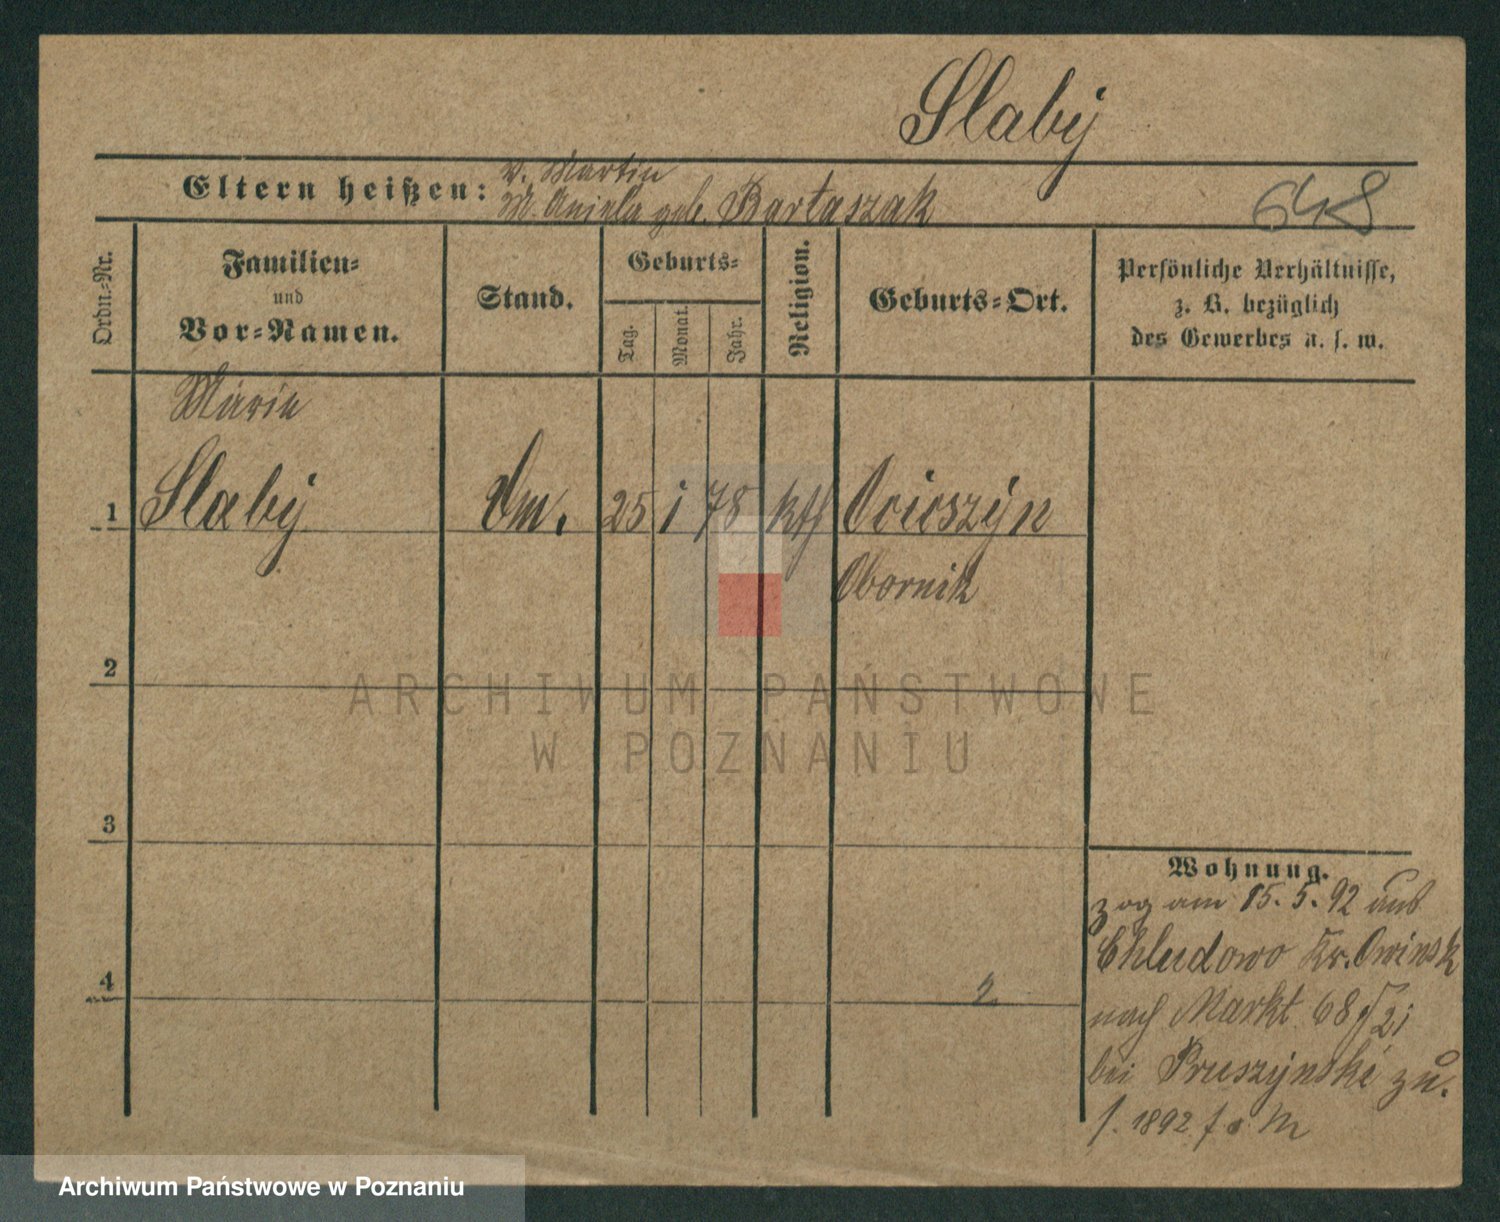 Slabÿ
Eltern heißen: v. Martin
M. Aniela geb. Bartaszak
648
Ordn.-Nr.
Familien-
und
Vor-Namen.
Stand.
Geburts-
Tag.
Monat.
Jahr.
Religion.
Geburts-Ort.
Persönliche Verhältnisse,
z. B. bezüglich
des Gewerbes u. s. w.
Marie
1 Slabÿ Dm. 25 1 78 kth Ocieszÿn
Obornik
2
ARCHIWUM PAŃSTWOWE
W POZNANIU
3
4
Wohnung.
zog am 15. 5. 92 aus
Chludowo Kr. Owinsk
nach Markt 68
bei Pruszÿnski zu.
1892
Archiwum Państwowe w Poznaniu